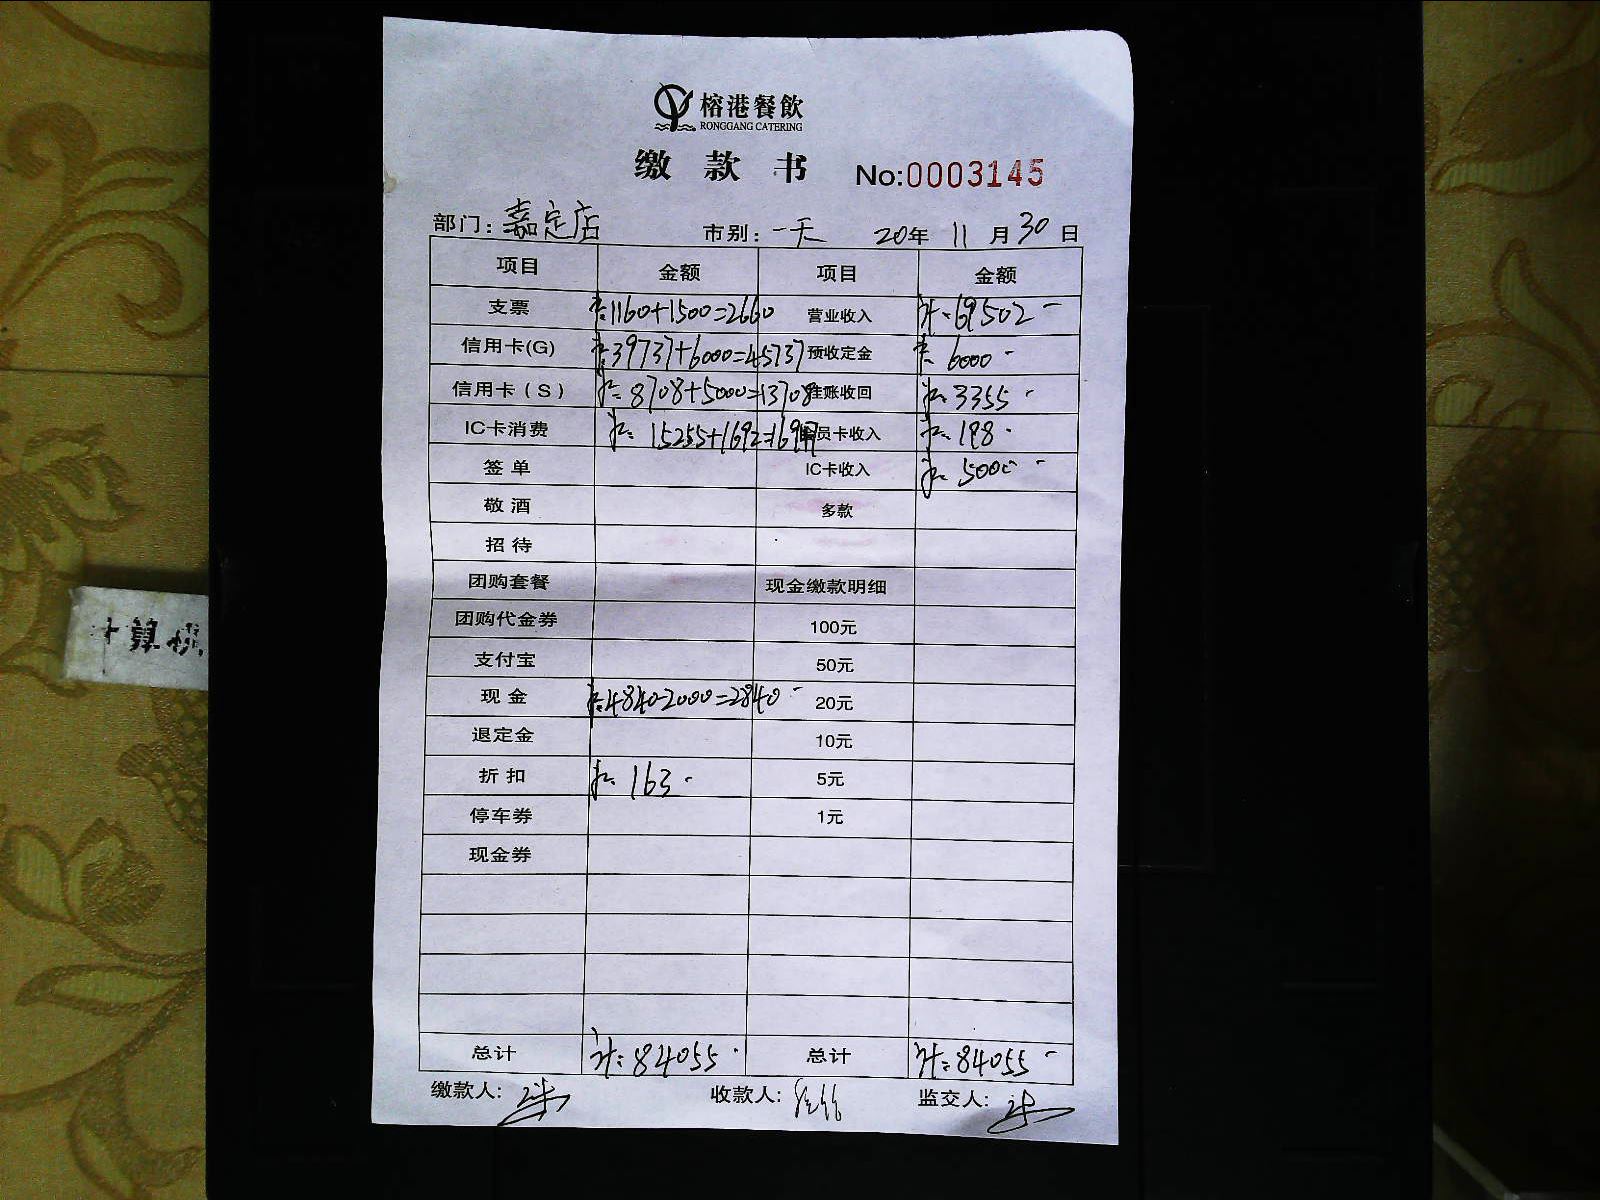 榕港餐飲
RONGGANG CATERING
缴 款 书 No:0003145
部门: 嘉定店 市别: 一天 20年 11 月 30 日
项目 金额 项目 金额
支票 计:1160+1500=2660 营业收入 计:69502-
信用卡(G) 计:39737+6000=45737 预收定金 计:6000-
信用卡(S) 计:8708+5000=13708 挂账收回 计:3355-
IC卡消费 计:15255+1692=16947 会员卡收入 计:198-
签单 IC卡收入 计:5000-
敬酒 多款
招待
团购套餐 现金缴款明细
团购代金券 100元
支付宝 50元
现金 计:4840-2000=2840- 20元
退定金 10元
折扣 计:163- 5元
停车券 1元
现金券
总计 计:84055- 总计 计:84055-
缴款人: 收款人: 监交人:
算机